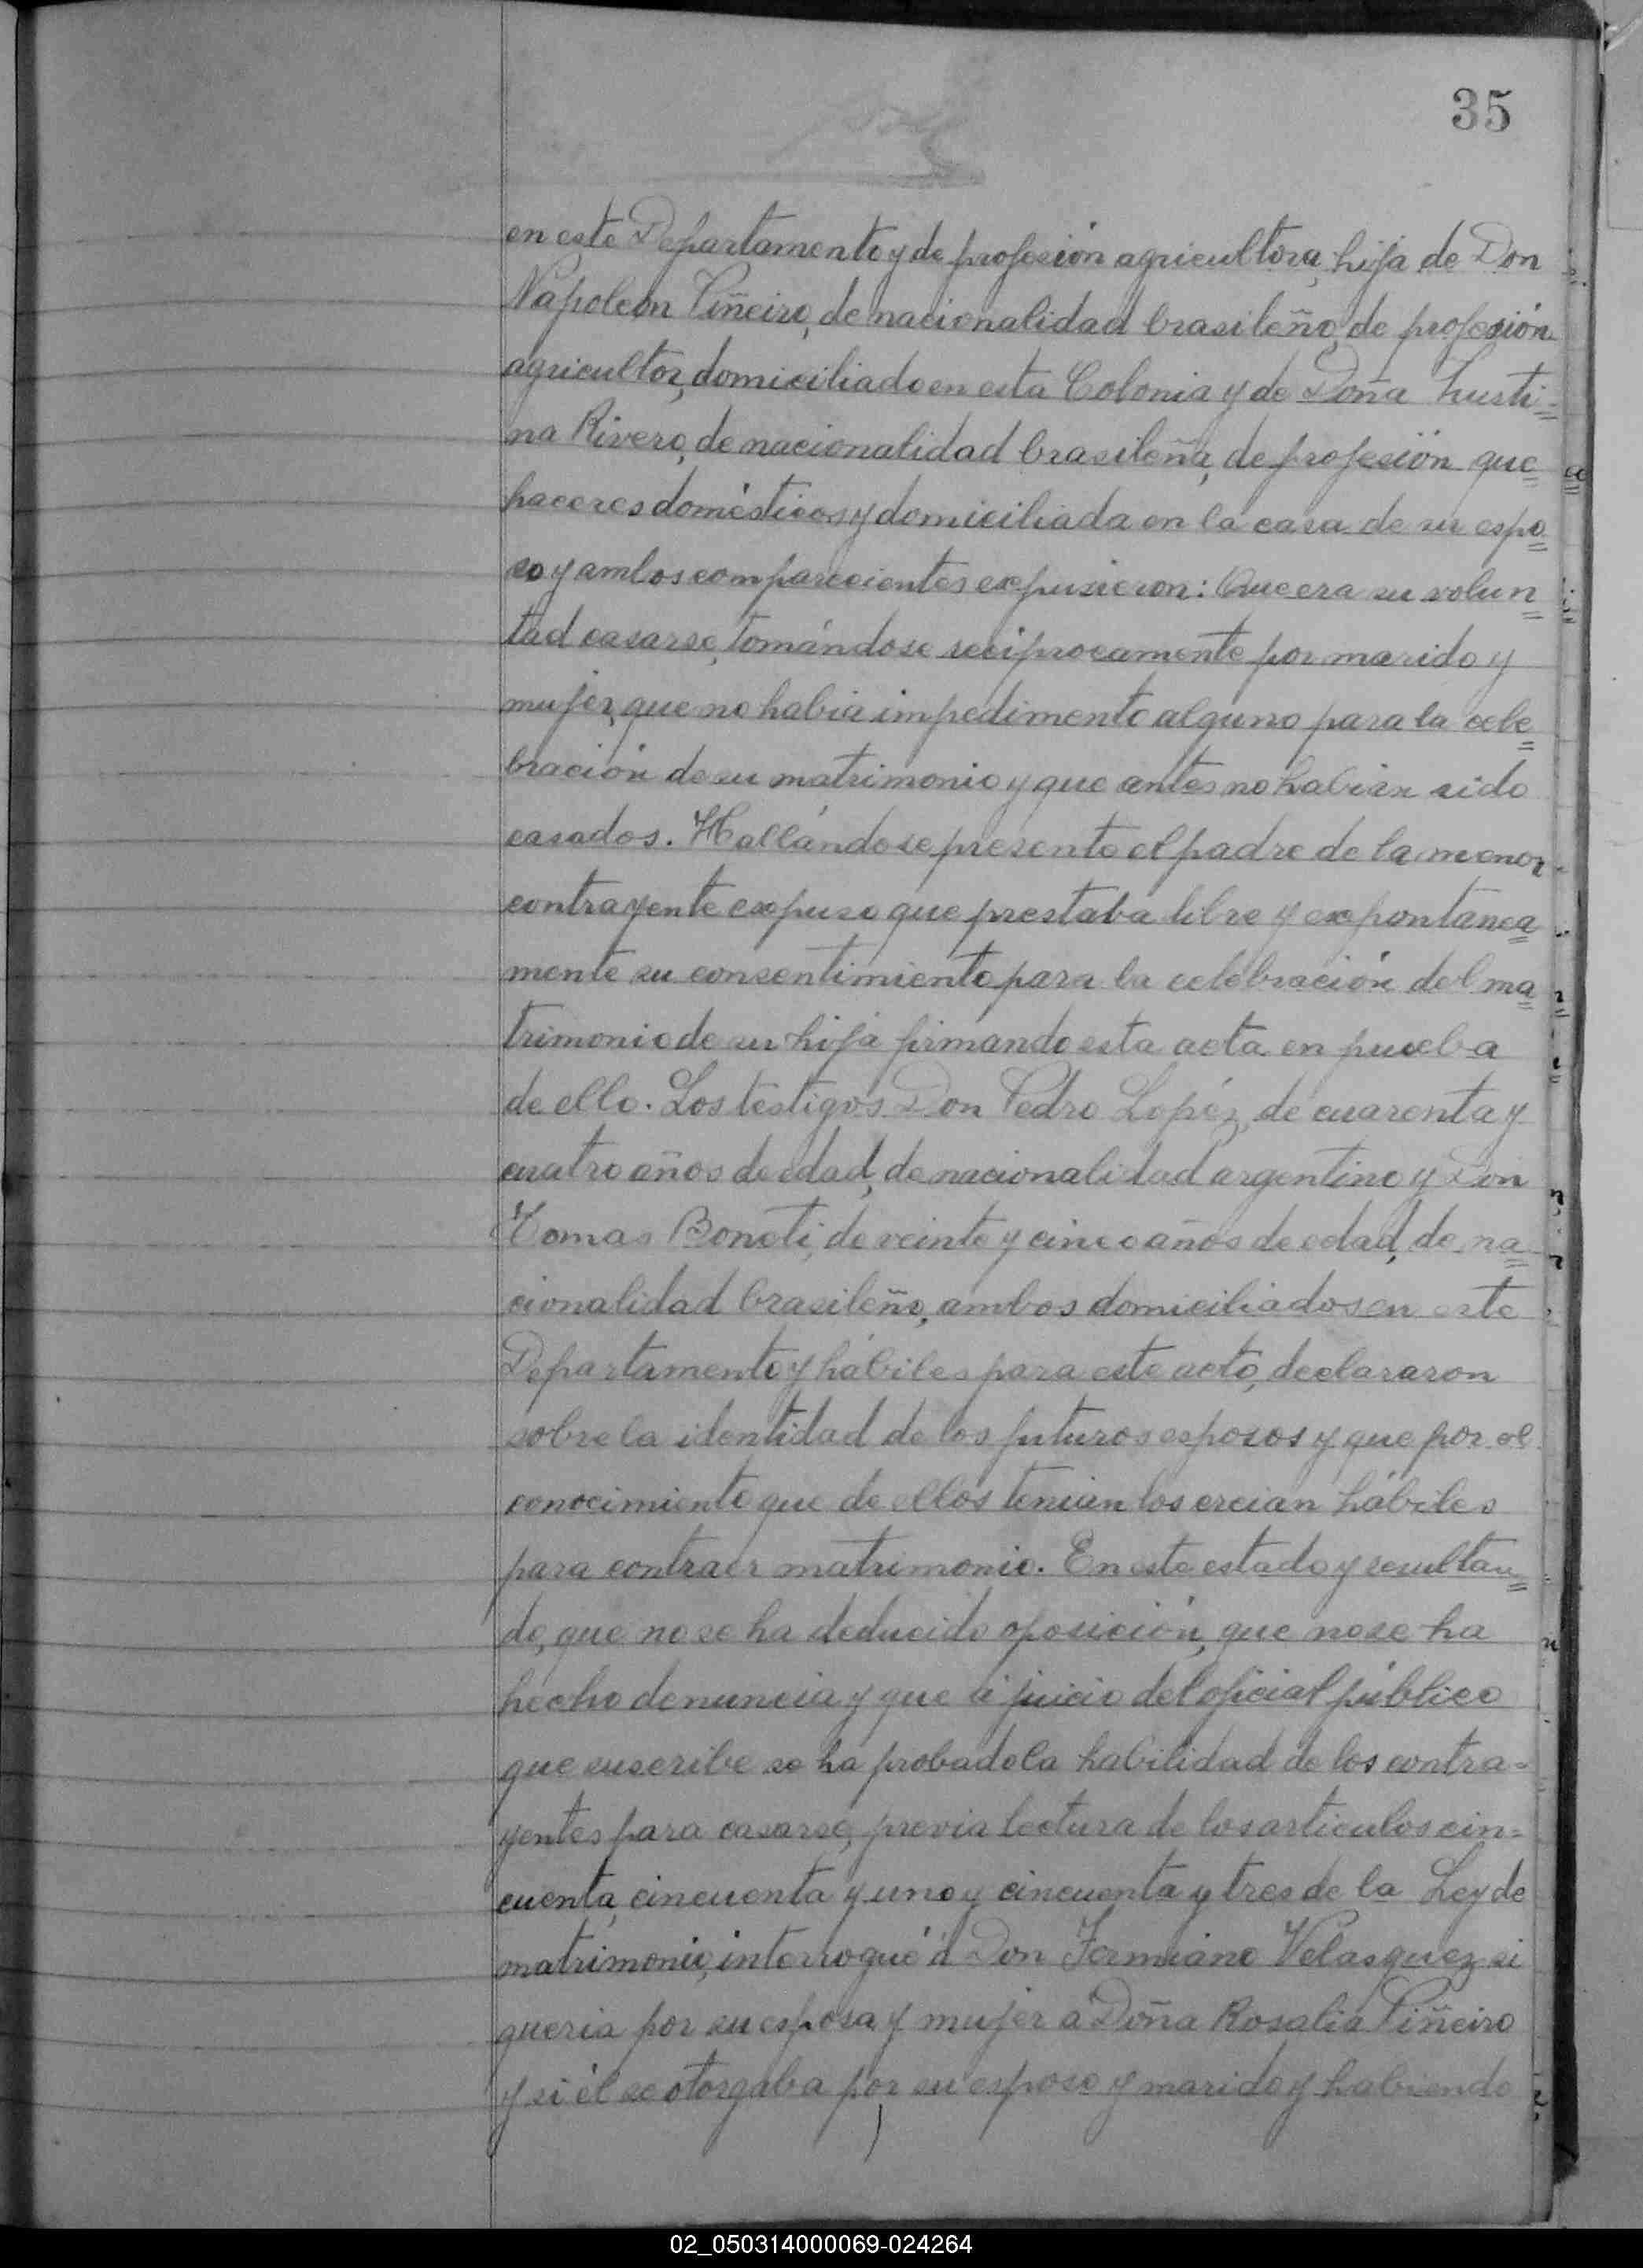 35
en este Departamento y de profesión agricultora, hija de Don
Napoleon Piñeiro, de nacionalidad brasileño, de profesión
agricultor, domiciliado en esta Colonia y de Doña Justi=
na Rivero, de nacionalidad brasileña, de profesión que=
haceres domésticos y domiciliada en la casa de su espo=
so y ambos comparecientes expusieron: Que era su volun=
tad casarse, tomándose reciprocamente por marido y
mujer, que no habia impedimento alguno para la cele=
bración de su matrimonio y que antes no habian sido
casados. Hallándose presente el padre de la menor
contrayente expuso que prestaba libre y expontanea=
mente su consentimiento para la celebración del ma=
trimonio de su hija firmando esta acta en prueba
de ello. Los testigos Don Pedro Lopéz, de cuarenta y
cuatro años de edad, de nacionalidad argentino y Don
Tomas Boneti, de veinte y cinco años de edad, de na=
cionalidad brasileño, ambos domiciliados en este
Departamento y hábiles para este acto, declararon
sobre la identidad de los futuros esposos y que por el
conocimiento que de ellos tenian los creian hábiles
para contraer matrimonio. En este estado y resultan=
do, que no se ha deducido oposición, que no se ha
hecho denuncia y que á juicio del oficial público
que suscribe se ha probado la habilidad de los contra=
yentes para casarse, previa lectura de los articulos cin=
cuenta, cincuenta y uno y cincuenta y tres de la Ley de
matrimonio, interrogué á Don Fermiano Velasquez si
queria por su esposa y mujer á Doña Rosalia Piñeiro
y si él se otorgaba por su esposo y marido y habiendo
02_050314000069-024264